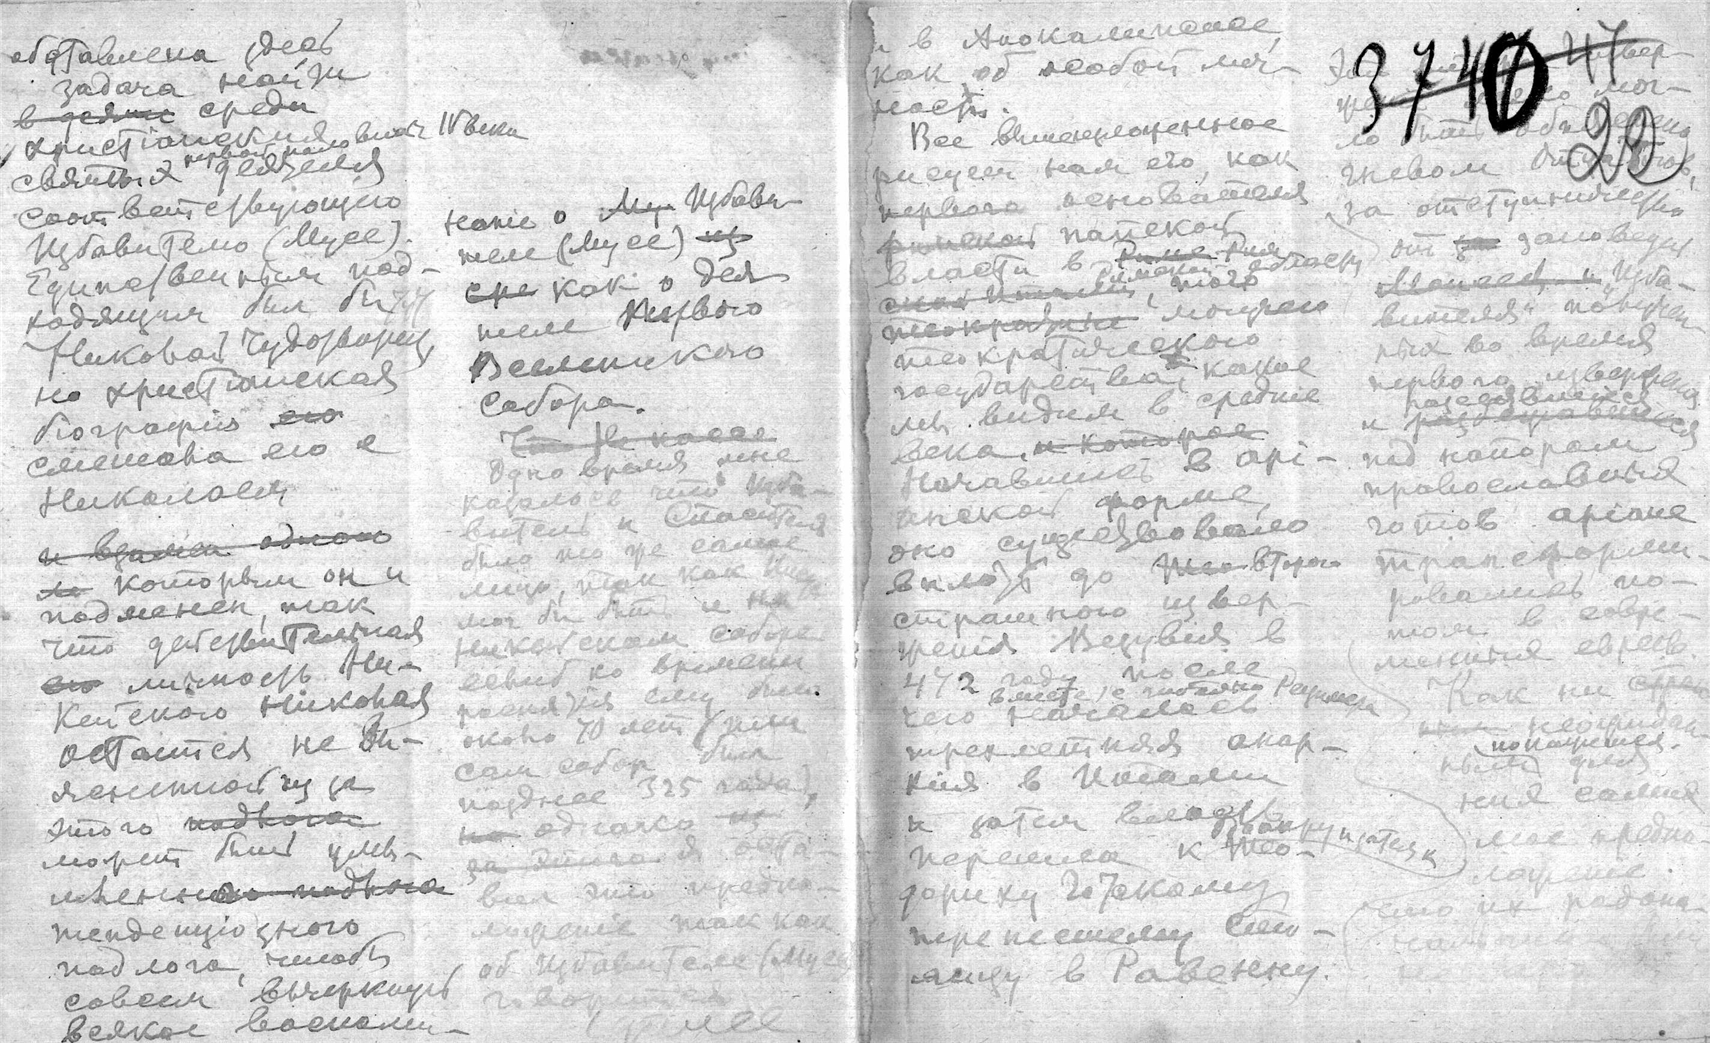 обставлена здесь
задача найти
в деян среди
христіанских
первой полов IV века
святых деятеля
соотвѣтствующего
Избавителю (Мусе).
Единственным под-
ходящим был бы
Николай Чудотворец,
но христіанская
біографія его
смешана его с
Николаем
и взамен одного
ли которым он и
подменен, так
что действительная
его личность Ни-
кейского Николая
остается не вы-
ясненной из за
этого подлога
может быть умы-
шленного подлога
тенденціозного
подлога, чтобы
совсем вычеркнуть
всякое воспоми-
наніе о Му Избави-
теле (Мусе) из
сре как о дея
теле Первого
Вселенского
собора.
Одно время мне
казалось что Изба-
витель и Спаситель
было то же самое
лицо, так как Иисус
мог бы быть и на
Никейском соборе
если б ко времени
распятія ему было
около 70 лет (или
сам собор был
позднее 325 года),
но однако из
за этого я оста-
вил это предпо-
ложеніе так как
об Избавителе (Мусе)
говорится
и в Апокалипсисе,
как об особой лич-
ности.
Все вышеизложенное
рисует нам его, как
первого основателя
римской папской
власти в Риме
римской области
того могучего
теократического
государства, какое
мы видим в средніе
века, и которое
Начавшись в арі-
анской форме,
оно существовало
вплоть до второго
страшного извер-
женія Везувія в
472 году после
чего вместе с гибелью Рецимера
началась
трехлетняя анар-
хія в Италіи
и затем власть
перешла к Тео-
дориху Готскому
перенесшему сто-
лицу в Равенну.
3740 47
22
ло быть объяснено
гневом Отца Богов,
за отступничество
от за заповедей
Изба-
вителя" полученных
во время
первого изверженія
и
под напором
православія
готов аріане
трансформи-
ровались по-
том в совре-
менных евреев.
Как ни стран
неожидан-
ным для
покажется
мое предпо-
ложеніе